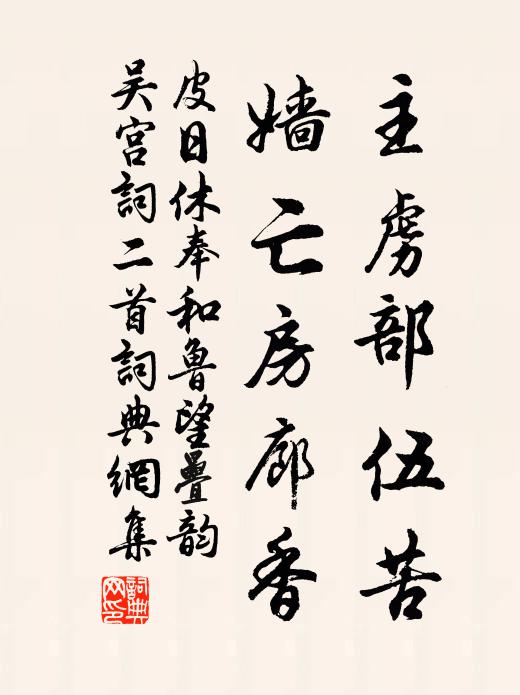 主虜部伍苦
嬙亡房廊香
皮日休奉和魯望疊韵
吴宮詞二首詞典網集
詞典
网印